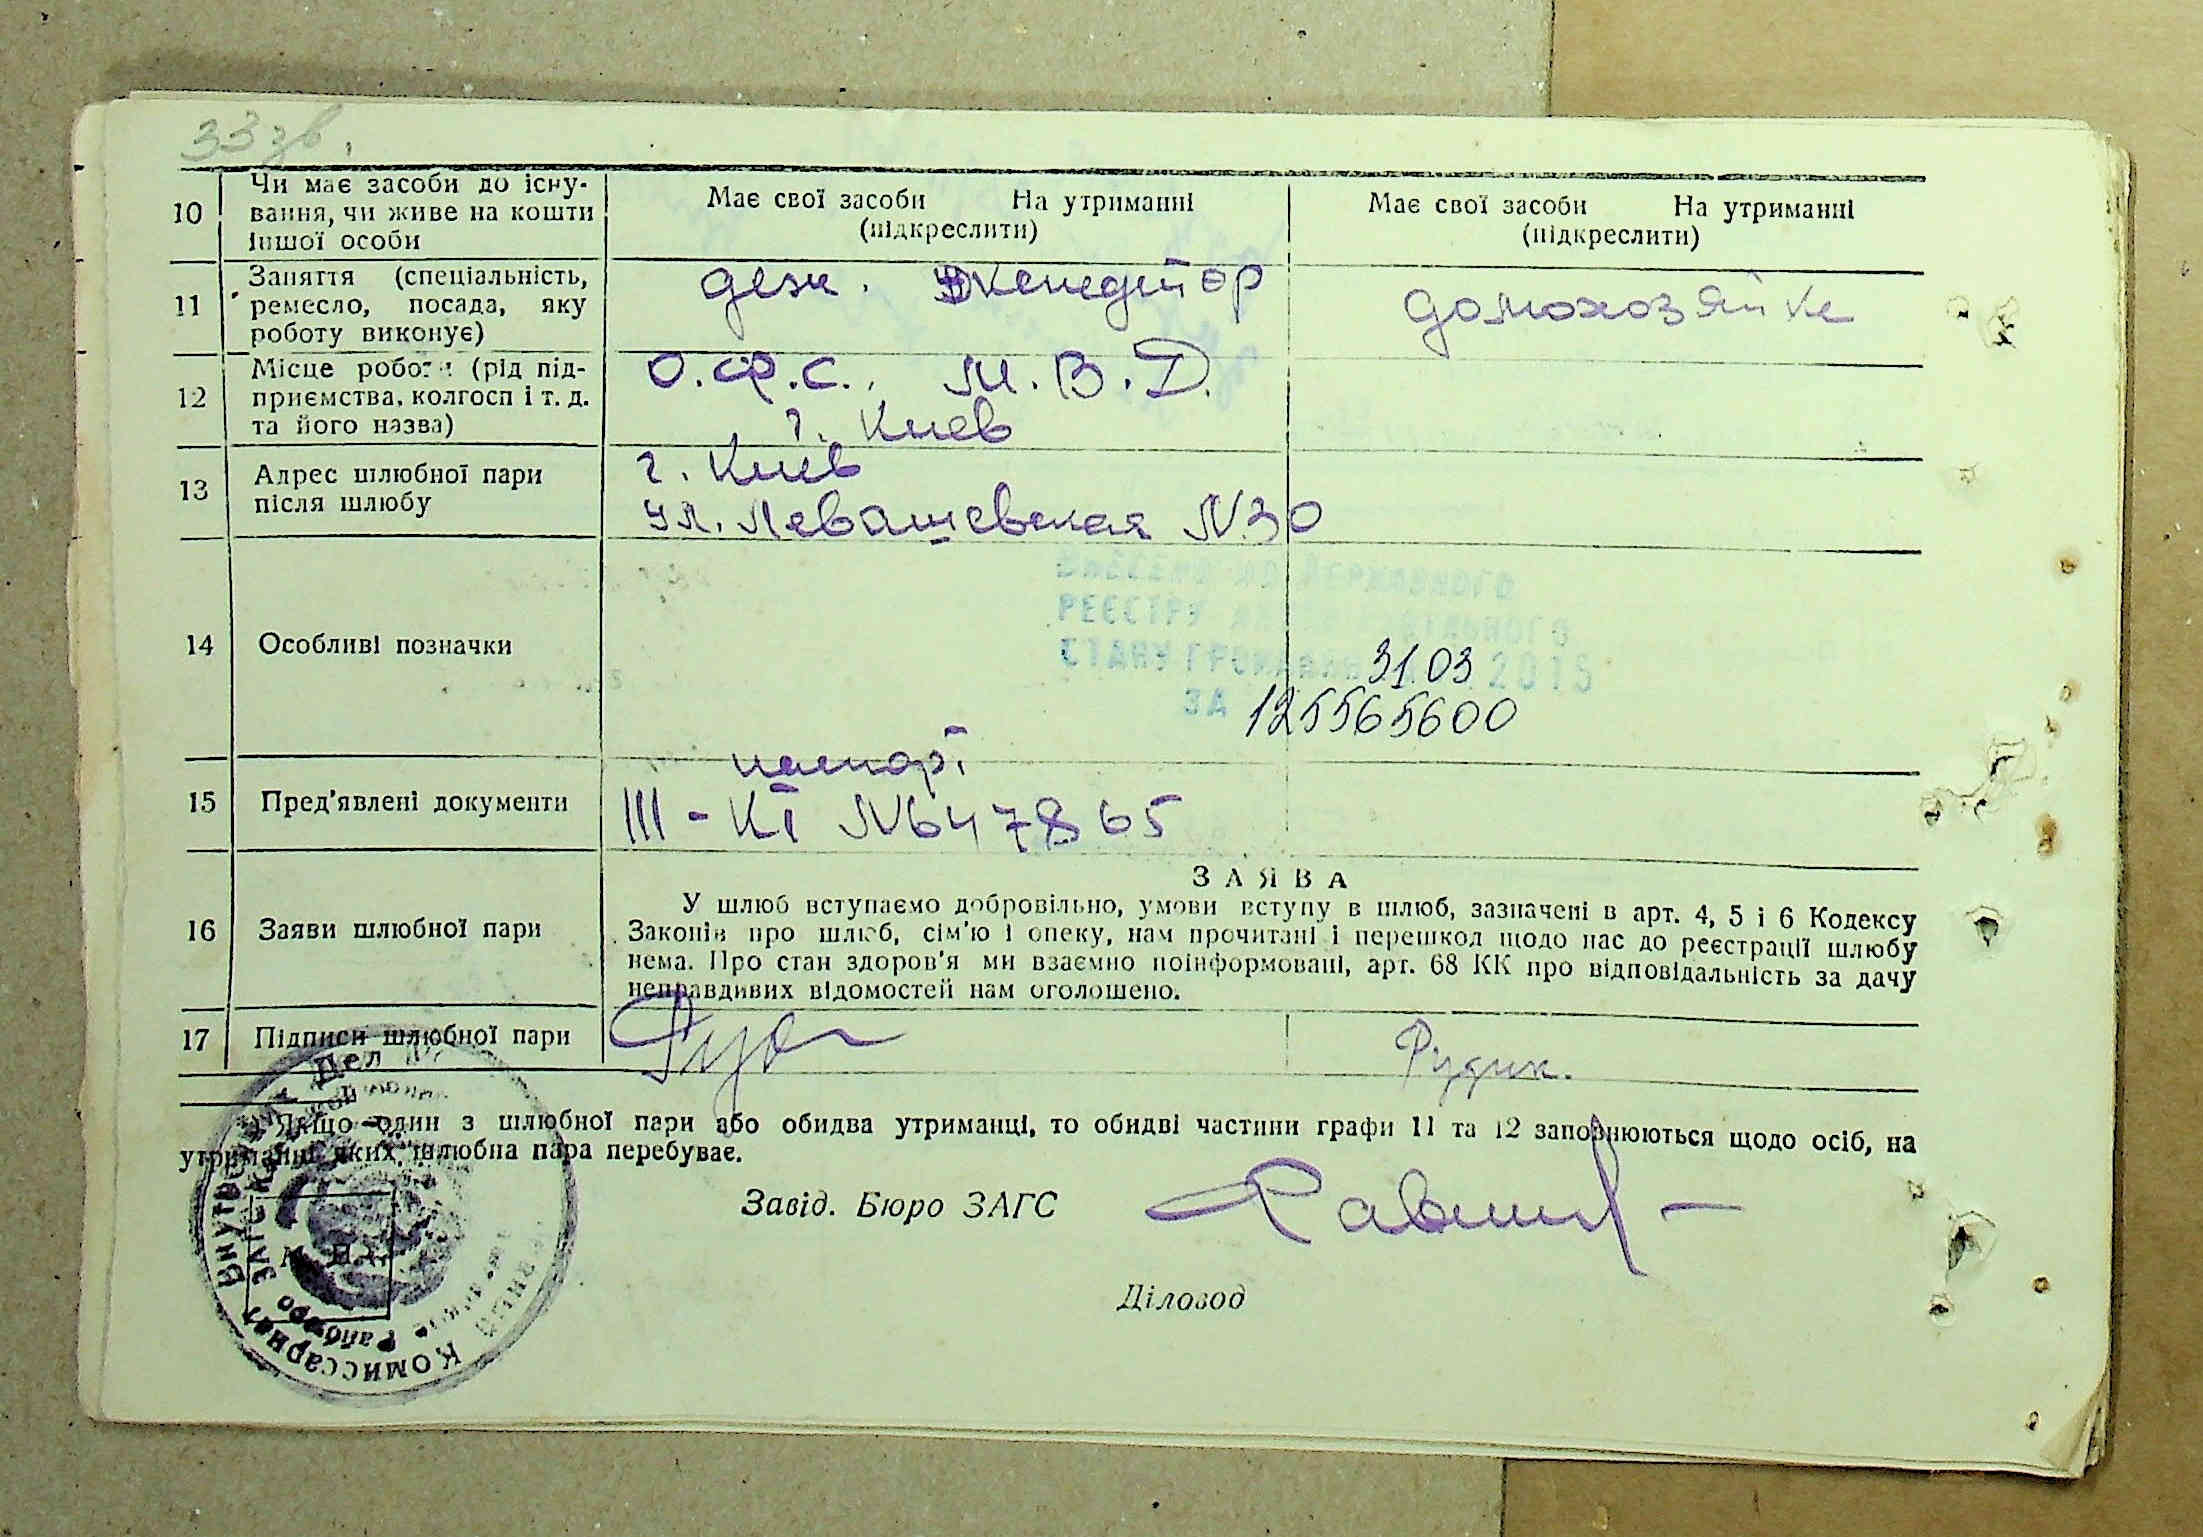 33 зв.
10 Чи має засоби до існу-
вання, чи живе на кошти
іншої особи
Має свої засоби На утриманні
(підкреслити)
Має свої засоби На утриманні
(підкреслити)
11 Заняття (спеціальність,
ремесло, посада, яку
роботу виконує)
экспедитор
домохозяйке
12 Місце роботи (рід під-
приємства, колгосп і т. д.
та його назва)
О.Ф.С. М.В.Д.
г. Киев
13 Адрес шлюбної пари
після шлюбу
г. Киев
ул. Левашевская №30
14 Особливі позначки
ВНЕСЕНО ДО ДЕРЖАВНОГО
РЕЄСТРУ АКТІВ ЦИВІЛЬНОГО
СТАНУ ГРОМАДЯН 31.03 2015
ЗА 125565600
15 Пред'явлені документи
паспорт
III-КГ №647865
16 Заяви шлюбної пари
ЗАЯВА
У шлюб вступаємо добровільно, умови вступу в шлюб, зазначені в арт. 4, 5 і 6 Кодексу
Законів про шлюб, сім'ю і опеку, нам прочитані і перешкод щодо нас до реєстрації шлюбу
нема. Про стан здоров'я ми взаємно поінформовані, арт. 68 КК про відповідальність за дачу
неправдивих відомостей нам оголошено.
17 Підписи шлюбної пари
Рудик.
Якщо один з шлюбної пари або обидва утриманці, то обидві частини графи 11 та 12 заповнюються щодо осіб, на
утриманні яких шлюбна пара перебуває.
Завід. Бюро ЗАГС
Діловод
М. П.
Комиссариат Внутренних Дел
Райбюро ЗАГС